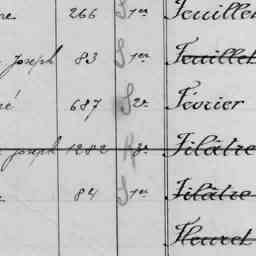 re 266 S 1er Feuillet
Joseph 83 S 1er Feuillet
é 687 S 2e Février
Joseph 1282 3e Filâtre
84 S 1er Filâtre
Fleuret